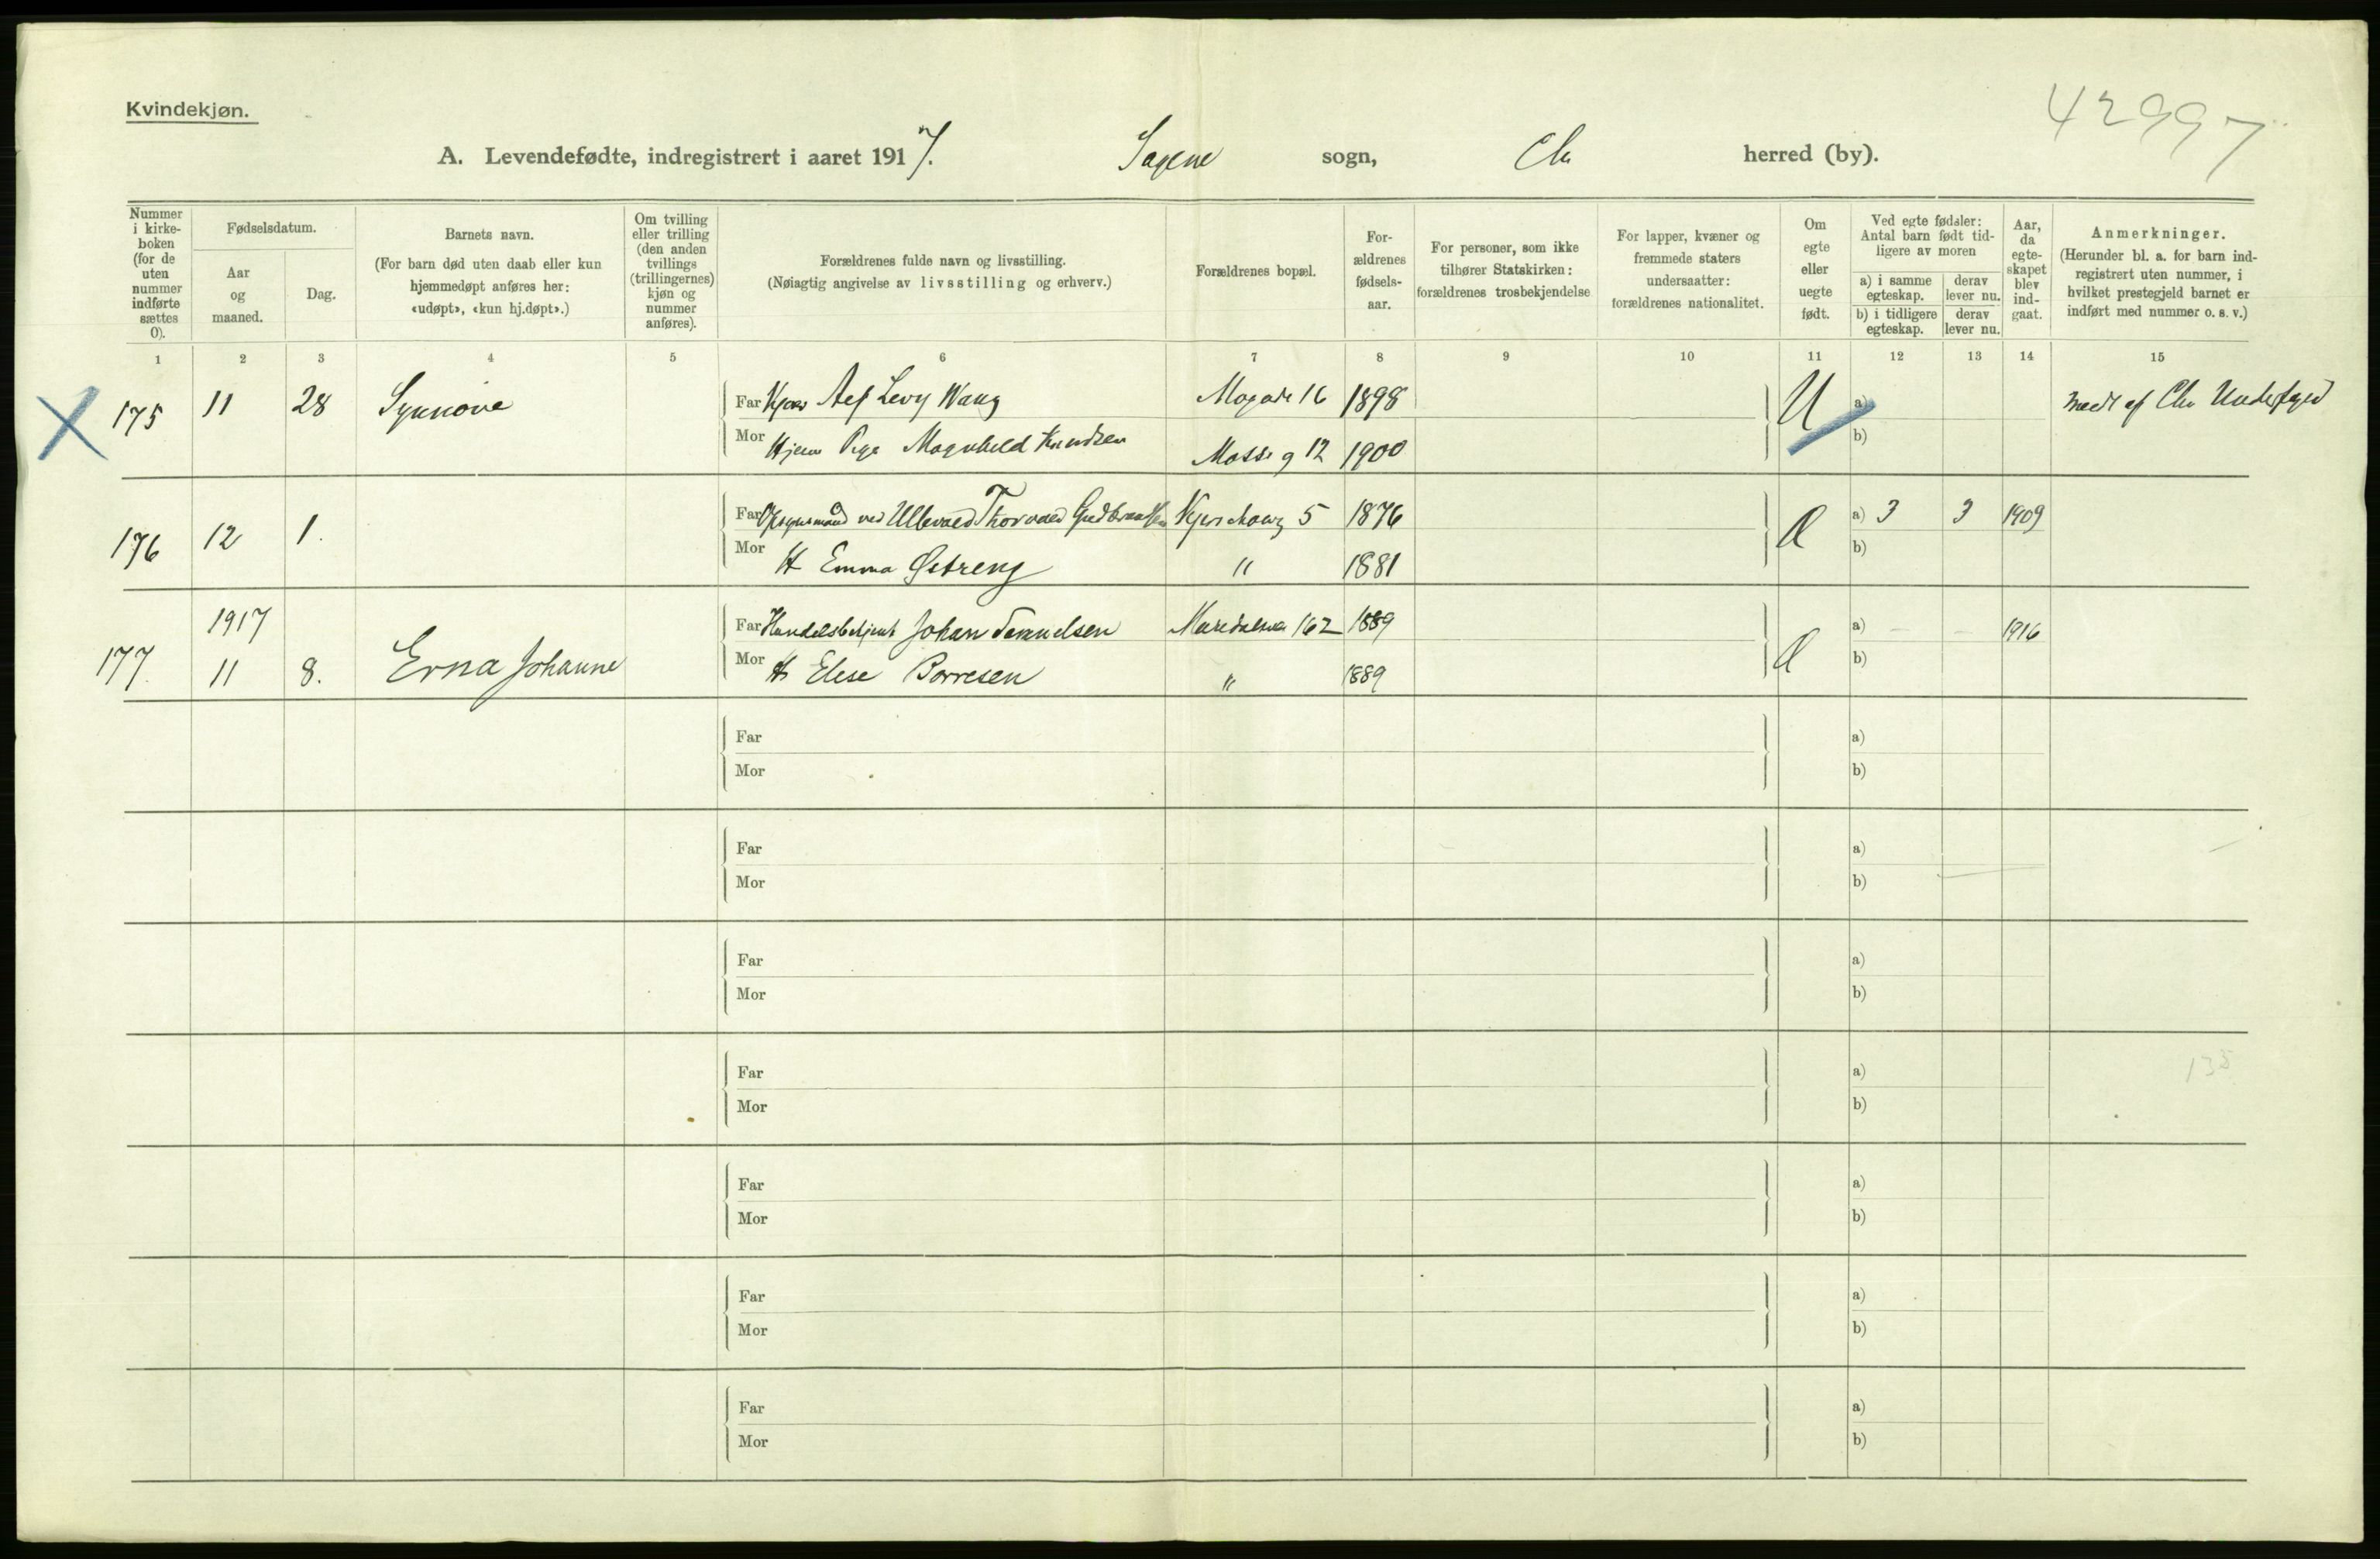 Kvindekjøn.
42997
A. Levendefødte, indregistrert i aaret 1917. Sagene sogn, Chr herred (by).
Nummer i kirke-boken (for de uten nummer indførte sættes 0).
Fødselsdatum.
Aar og maaned.
Dag.
Barnets navn.
(For barn død uten daab eller kun hjemmedøpt anføres her: «udøpt», «kun hj.døpt».)
Om tvilling eller trilling (den anden tvillings (trillingernes) kjøn og nummer anføres).
Forældrenes fulde navn og livsstilling.
(Nøiagtig angivelse av livsstilling og erhverv.)
Forældrenes bopæl.
For-ældrenes fødsels-aar.
For personer, som ikke tilhører Statskirken: forældrenes trosbekjendelse
For lapper, kvæner og fremmede staters undersaatter: forældrenes nationalitet.
Om egte eller uegte født.
Ved egte fødsler: Antal barn født tid-ligere av moren
a) i samme egteskap.
derav lever nu.
b) i tidligere egteskap.
derav lever nu.
Aar, da egte-skapet blev ind-gaat.
Anmerkninger.
(Herunder bl. a. for barn ind-registrert uten nummer, i hvilket prestegjeld barnet er indført med nummer o. s. v.)
1 2 3 4 5 6 7 8 9 10 11 12 13 14 15
175 11 28 Synnöve Far Levy Wang 16 1898 U a) af Chr
Mor Pige Magnhild Knudsen Mosseg 12 1900 b)
176 12 1. Far ved Ullevaal Thorvald Gudbrandsen 5 1876 a) 3 3 1909
Mor H Emma Østreng " 1881 b)
177. 1917 11 8. Erna Johanne Far Handelsbetjent Johan Samuelsen 162 1889 a) – – 1916
Mor H Elise Borresen " 1889 b)
Far a)
Mor b)
Far a)
Mor b)
Far a)
Mor b)
Far a) 135
Mor b)
Far a)
Mor b)
Far a)
Mor b)
Far a)
Mor b)